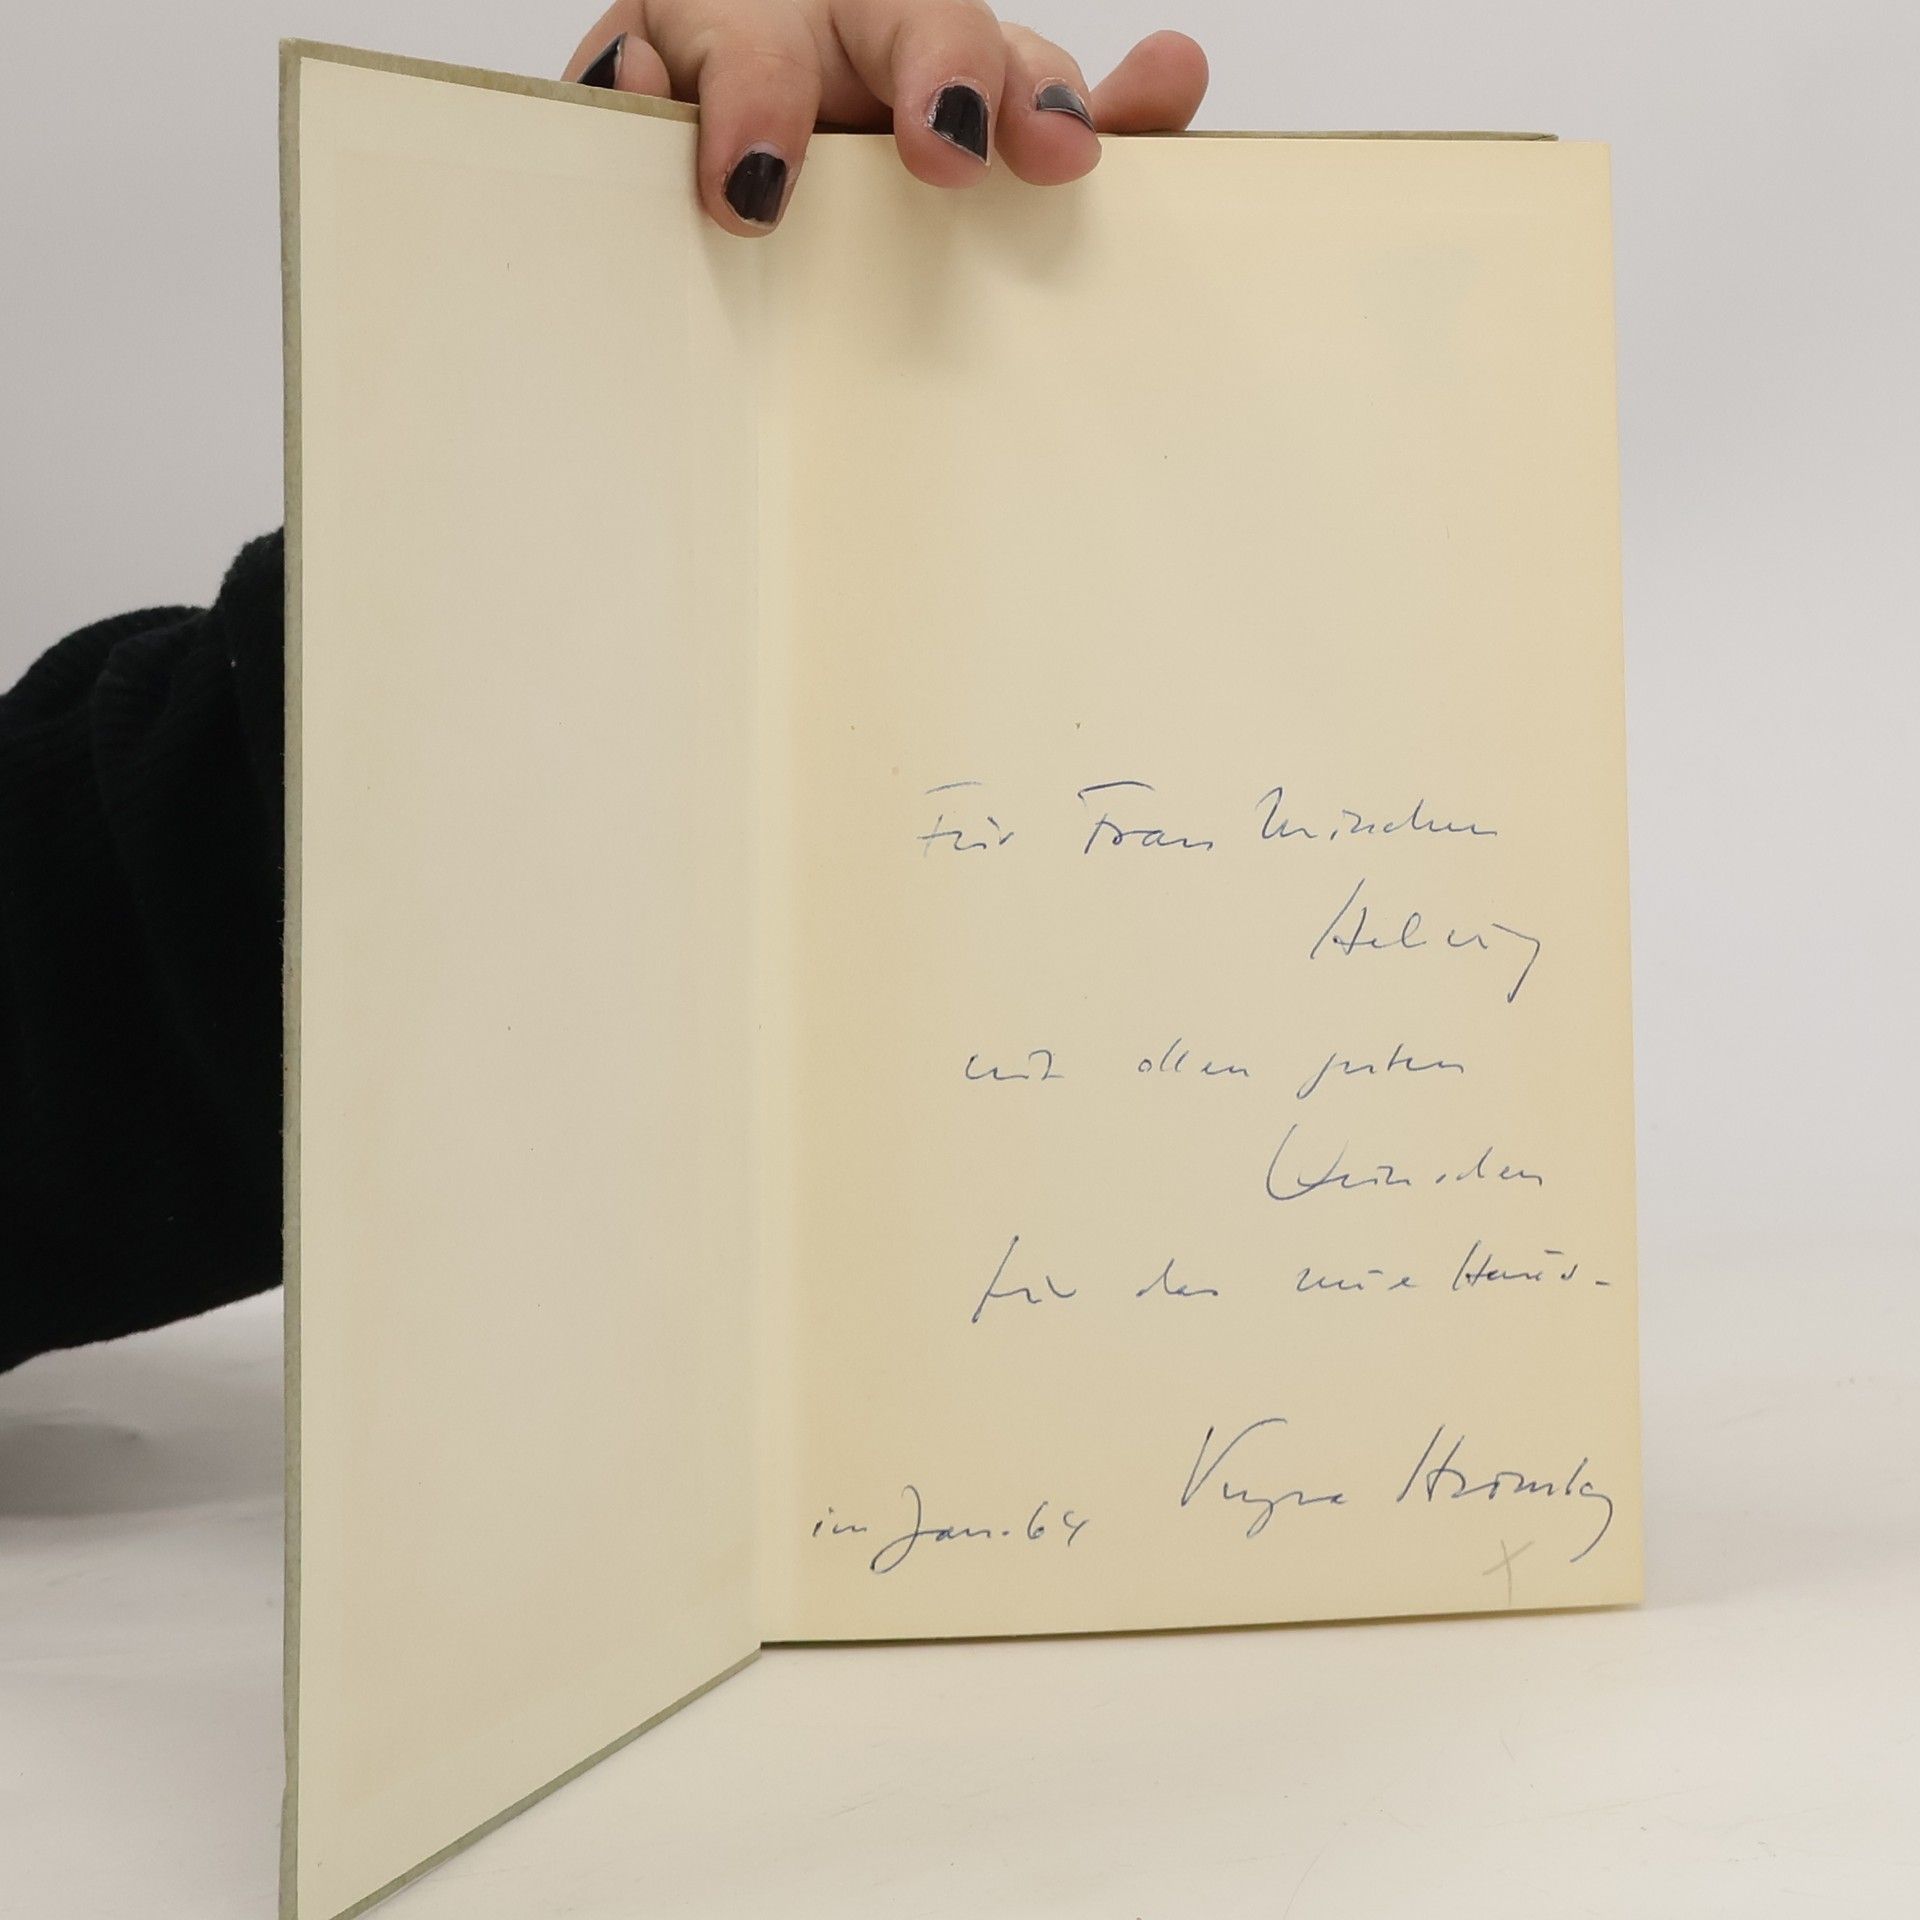 Für Frau Minchen
Helwig
mit allen guten
Wünschen
für das neue Haus-
im Jan. 64